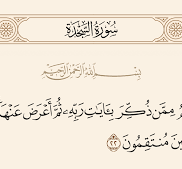 سُورَةُ السَّجْدَةِ
بِسْمِ اللَّهِ الرَّحْمَٰنِ الرَّحِيمِ
مِمَّن ذُكِّرَ بِـَٔايَٰتِ رَبِّهِۦ ثُمَّ أَعْرَضَ عَنْهَا
مُنتَقِمُونَ ٢٢